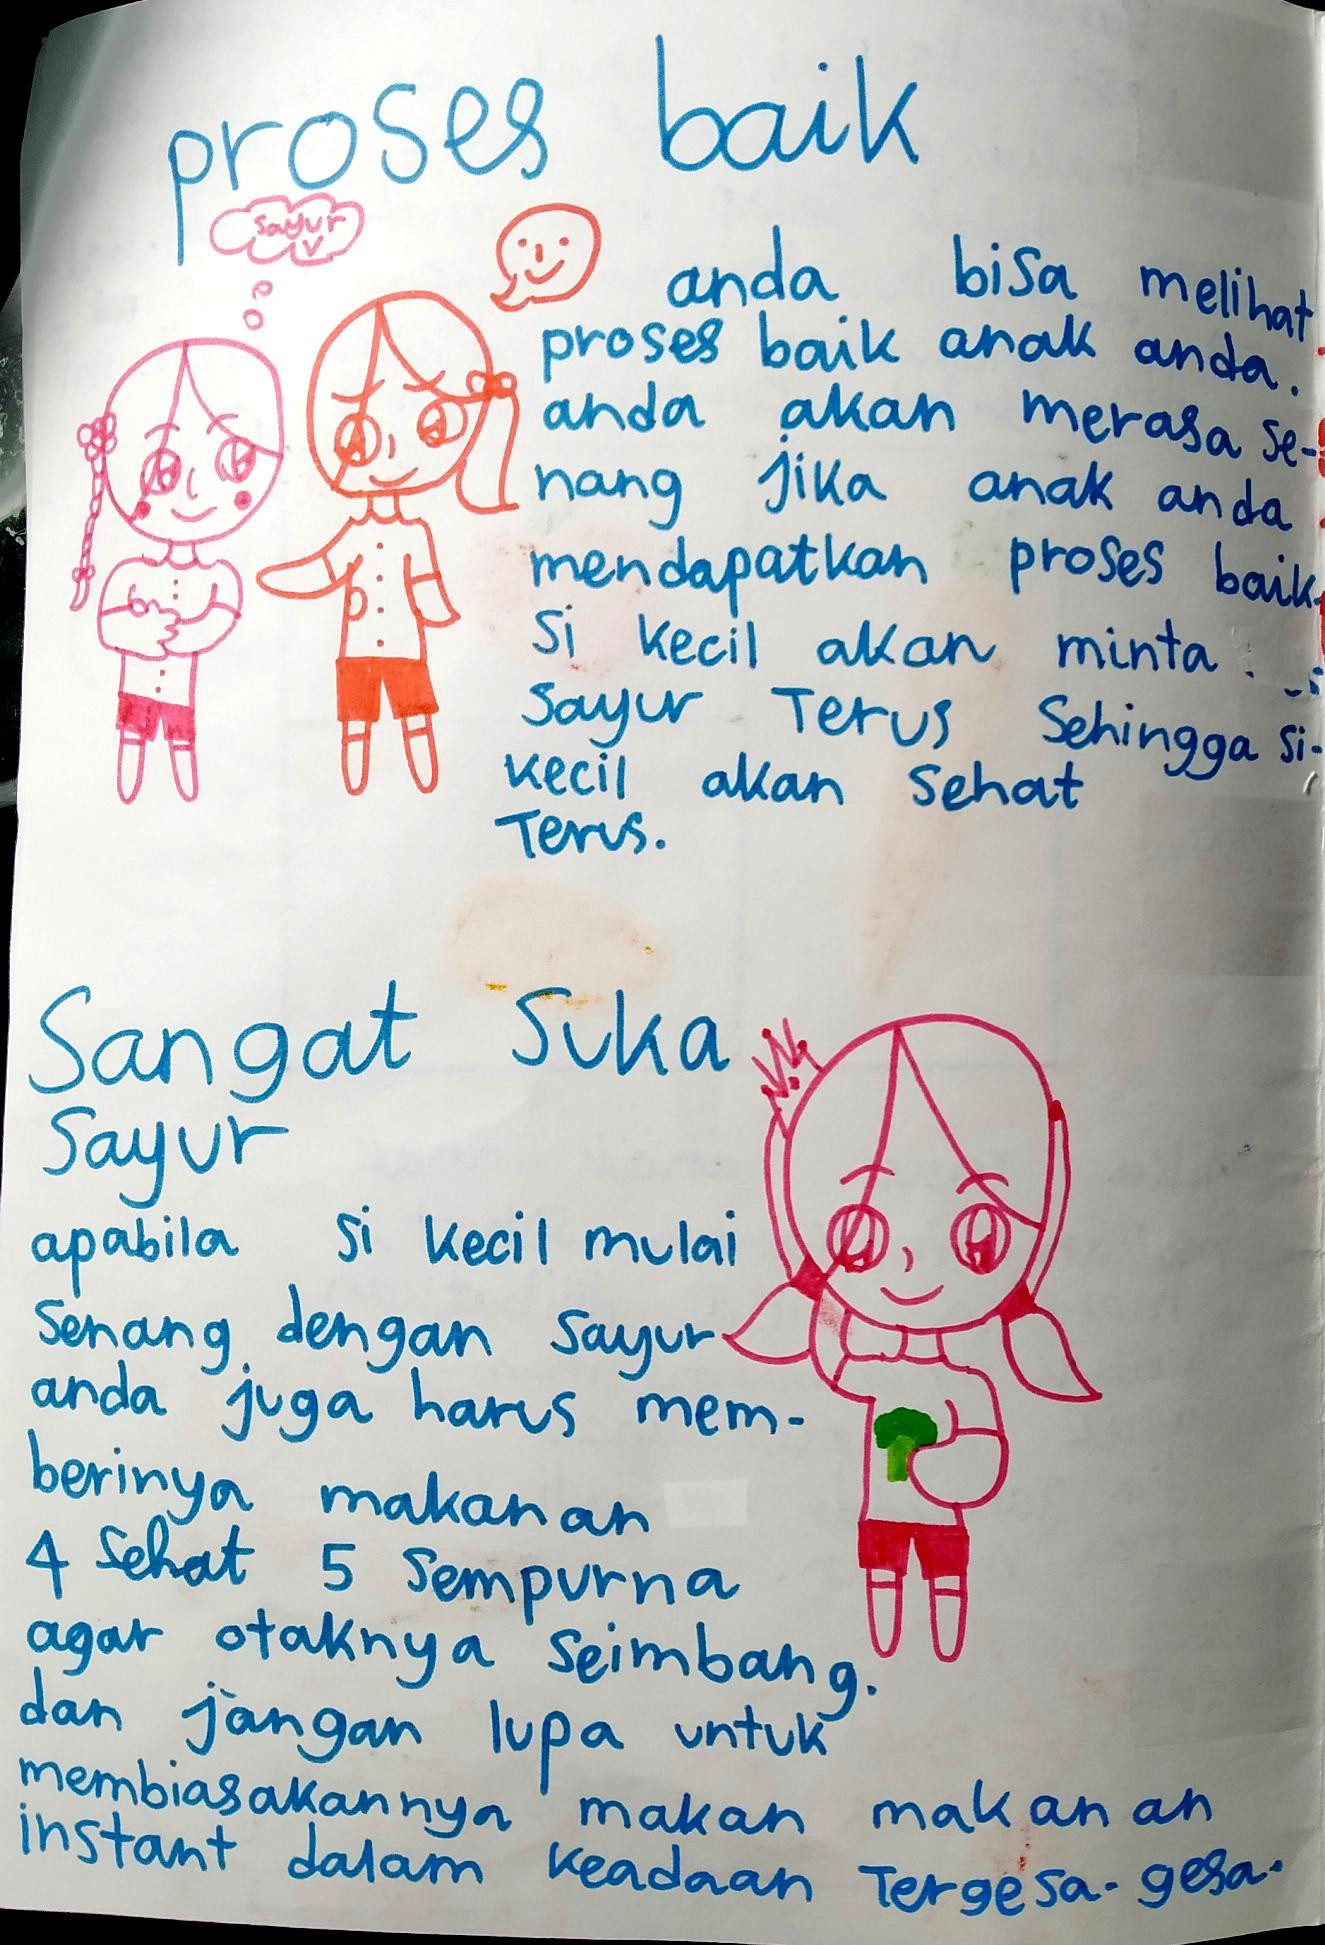 proses baik
sayur
anda bisa melihat
proses baik anak anda.
anda akan merasa se-
nang jika anak anda
mendapatkan proses baik.
Si kecil akan minta
sayur Terus Sehingga si-
kecil akan Sehat
Terus.
Sangat Suka
Sayur
apabila si kecil mulai
Senang dengan Sayur
anda juga harus mem-
berinya makanan
4 Sehat 5 Sempurna
agar otaknya Seimbang.
dan jangan lupa untuk
membiasakannya makan makanan
instant dalam keadaan Tergesa-gesa.